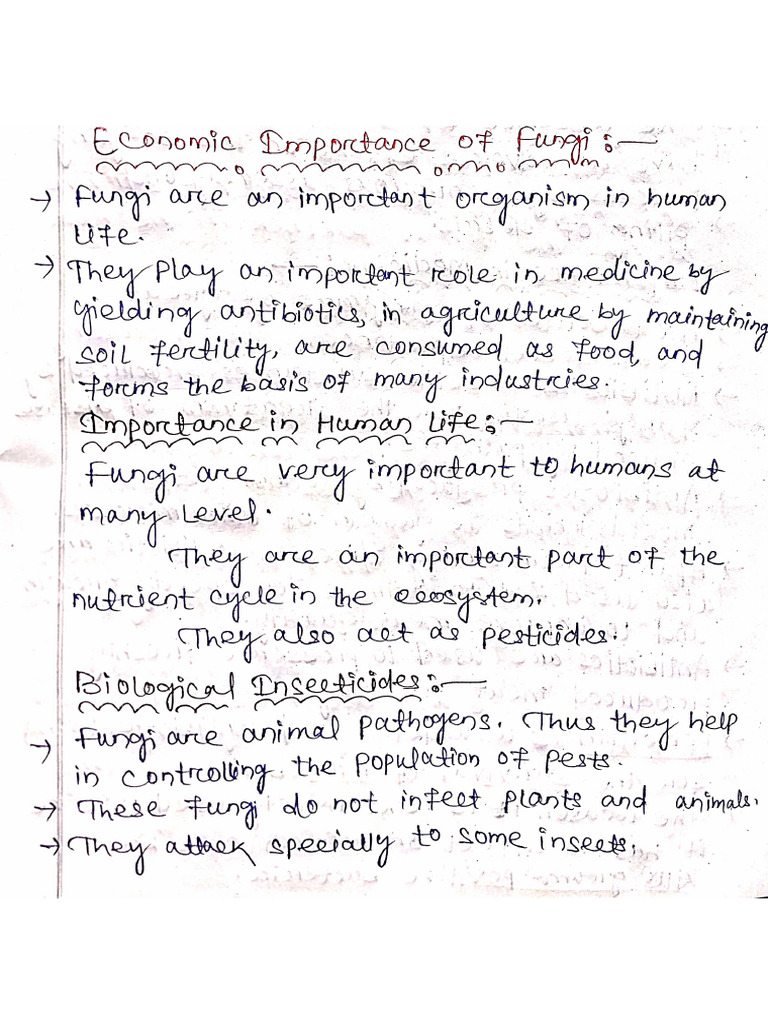 Economic Importance of Fungi:-
→ Fungi are an important organism in human
life.
→ They play an important role in medicine by
yielding antibiotics, in agriculture by maintaining
soil fertility, are consumed as food, and
forms the basis of many industries.
Importance in Human Life:-
Fungi are very important to humans at
many level.
They are an important part of the
nutrient cycle in the ecosystem.
They also act as pesticides.
Biological Insecticides:-
→ Fungi are animal pathogens. Thus they help
in controlling the population of pests.
→ These fungi do not infect plants and animals.
→ They attack specially to some insects.